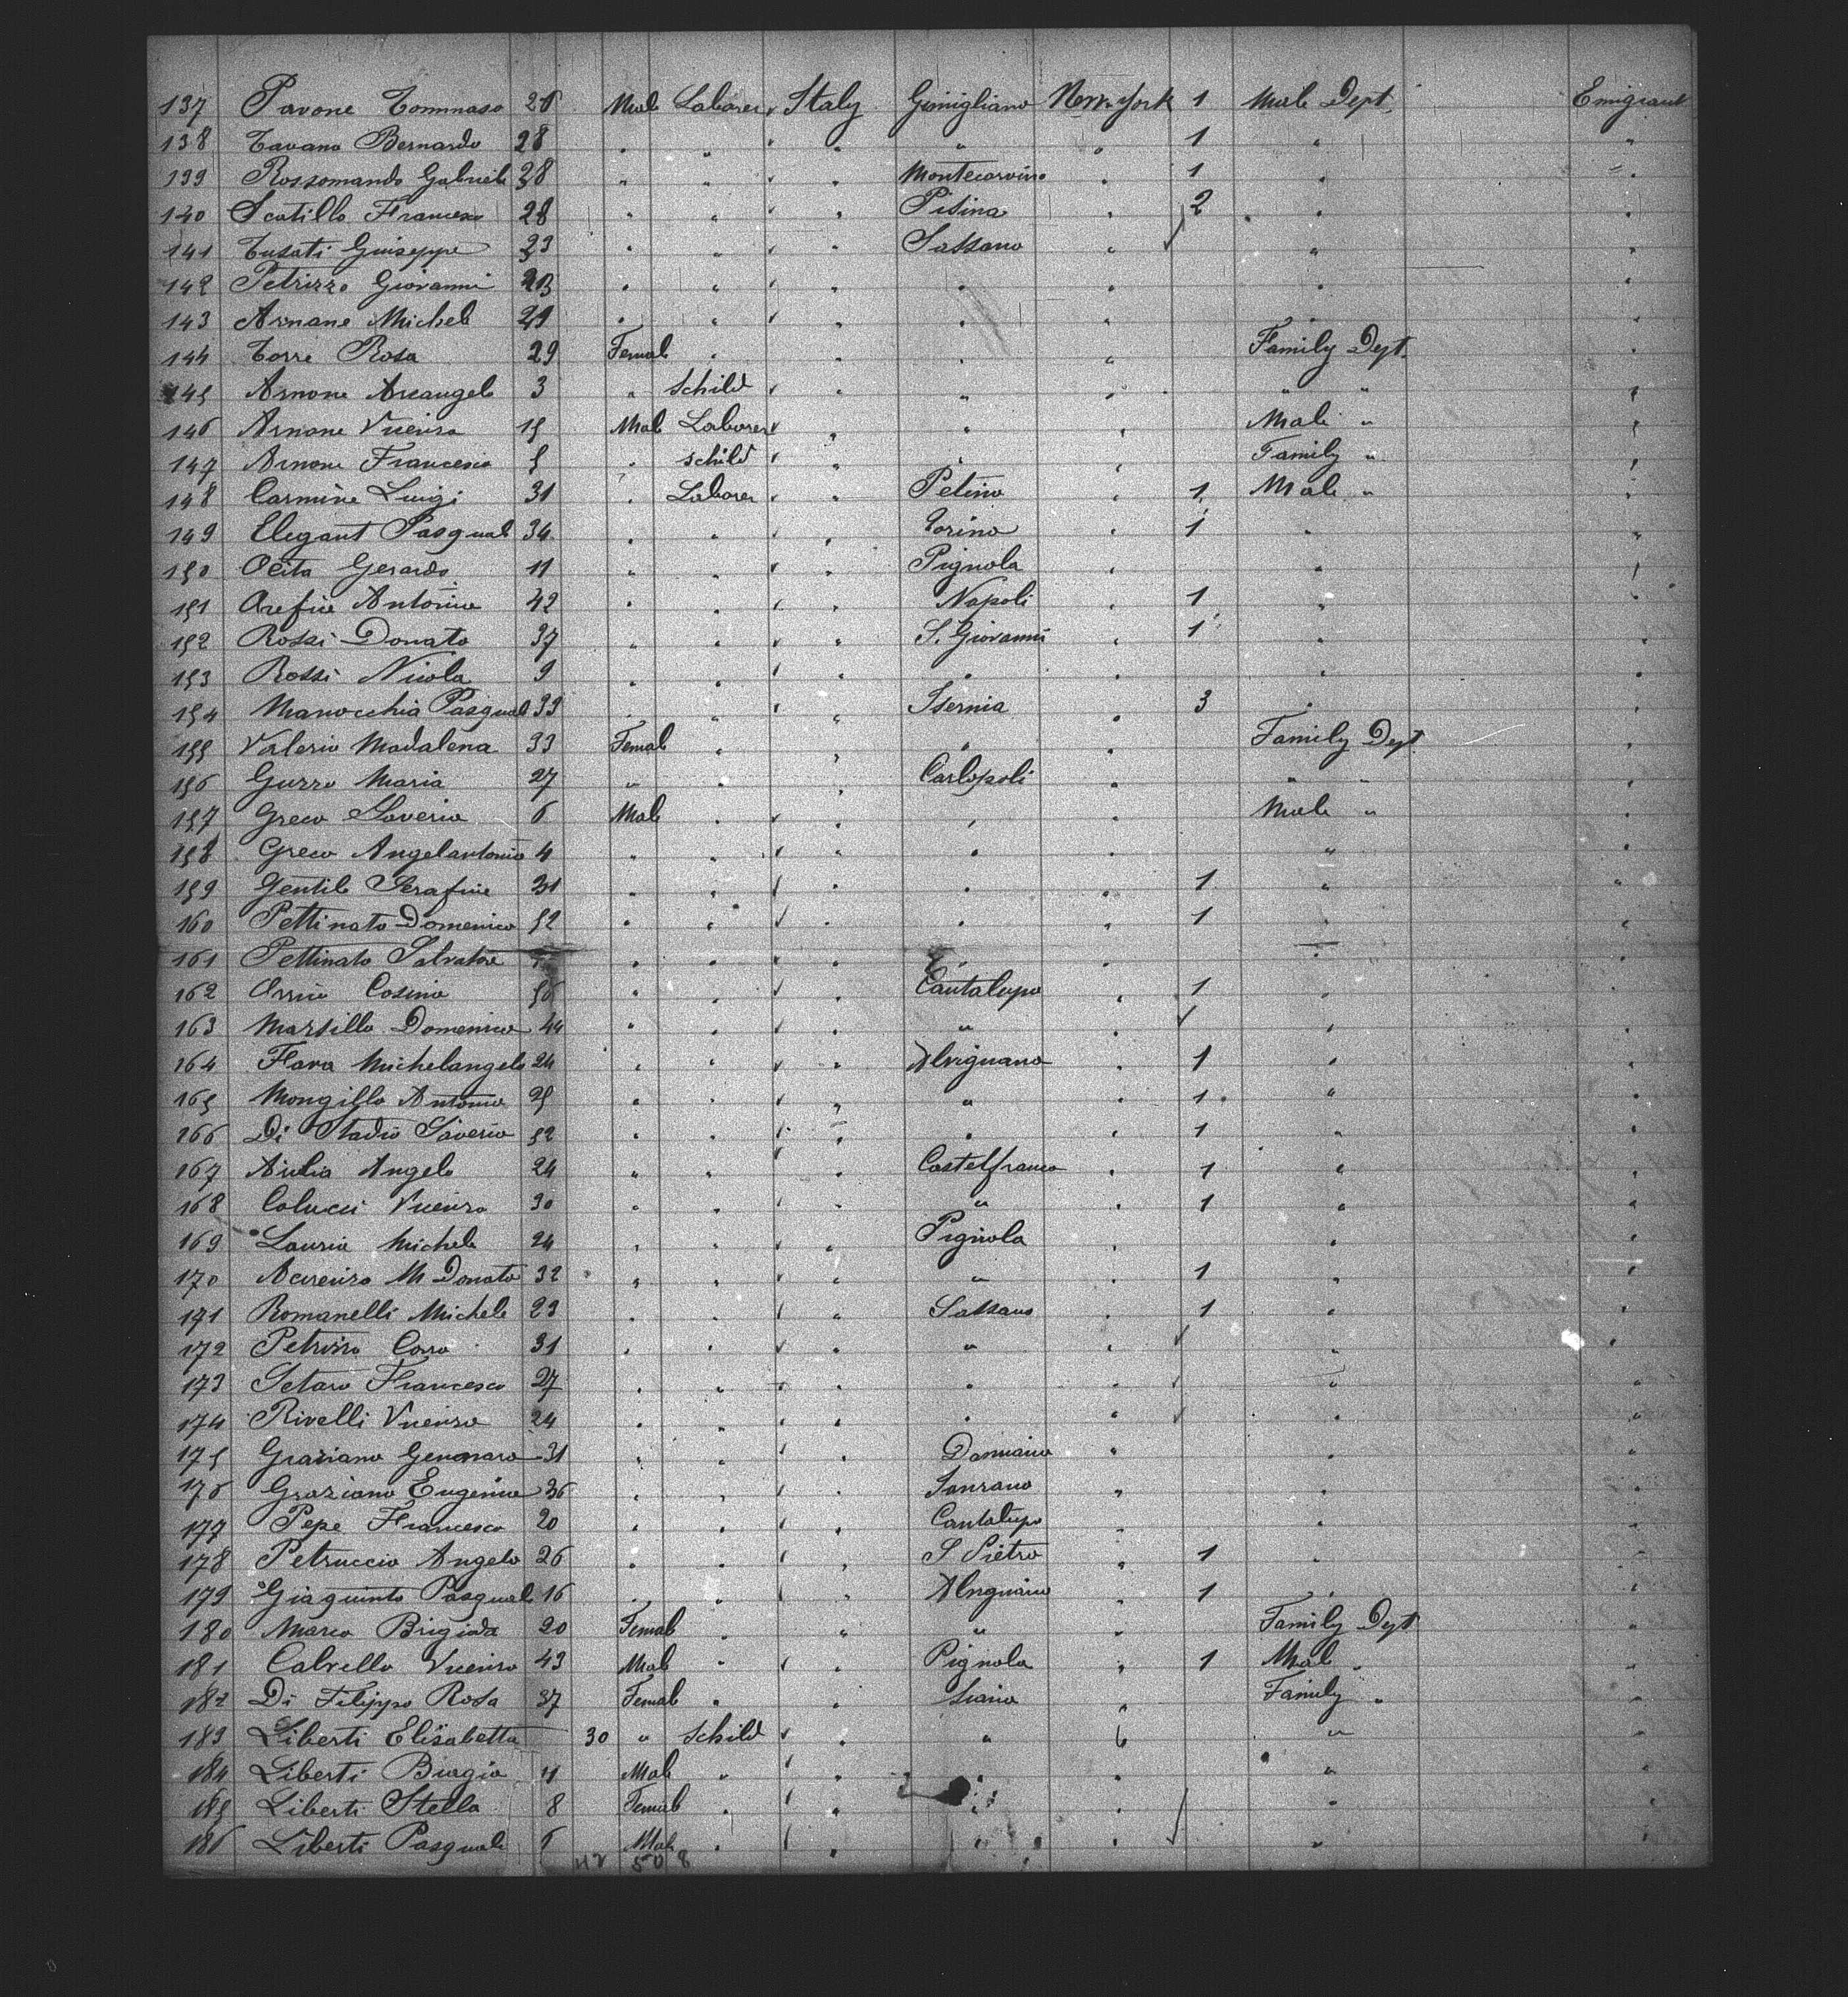 137 Pavone Tommaso 26 Male Laborer Italy Gimigliano New-York 1 Male Dept. Emigrant
138 Tavano Bernardo 28 " " " " " " 1 " "
139 Rossomando Gabriele 38 " " " Montecorvino " 1 " "
140 Scotillo Francesco 28 " " " Pisina " 2 " "
141 Tusati Giuseppe 23 " " " Sassano " " "
142 Petrizzo Giovanni " " " " " " "
143 Arnone Michele 29 " " " " " " "
144 Torre Rosa 29 Femal " " " " Family Dept. "
145 Arnone Arcangelo 3 " Schild " " " " " "
146 Arnone Vicenzo 15 Male Laborer " " " Male " "
147 Arnone Francesco 5 " schild " " " Family " "
148 Carmine Luigi 31 " Laborer " Petino " 1 Male " "
149 Elegant Pasquale 34 " " " Torino " 1 " "
150 Ocita Gerardo 11 " " " Pignola " " "
151 Orefice Antonio 42 " " " Napoli " 1 " "
152 Rossi Donato 37 " " " S. Giovanni " 1 " "
153 Rossi Nicola 9 " " " " " " "
154 Manocchia Pasquale 33 " " " Isernia " 3 " "
155 Valerio Madalena 33 Femal " " " " Family Dept. "
156 Guzzo Maria 27 " " " Carlopoli " " " "
157 Greco Saverio 6 Male " " " " Male " "
158 Greco Angelantonio 4 " " " " " " "
159 Gentile Serafino 31 " " " " " 1 " "
160 Pettinato Domenico 52 " " " " " 1 " "
161 Pettinato Salvatore " " " " " " "
162 Cosimo 56 " " " Cantalupo " 1 " "
163 Marsillo Domenico 44 " " " " " " "
164 Fava Michelangelo 24 " " " Alvignano " 1 " "
165 Mongillo Antonio 25 " " " " " 1 " "
166 Di Stadio Saverio 52 " " " " " 1 " "
167 Aiulia Angelo 24 " " " Castelfranco " 1 " "
168 Colucci Vicenzo 30 " " " " " 1 " "
169 Laurio Michele 24 " " " Pignola " " "
170 Acerenzo M Donato 32 " " " " " 1 " "
171 Romanelli Michele 23 " " " Sassano " 1 " "
172 Petrizzo Cono 31 " " " " " " "
173 Setaro Francesco 27 " " " " " " "
174 Rivelli Vicenzo 24 " " " " " " "
175 Graziano Gennaro 31 " " " " " "
176 Graziano Eugenio 36 " " " " " "
177 Pepe Francesco 20 " " " Cantalupo " " "
178 Petruccio Angelo 26 " " " S Pietro " 1 " "
179 Giaquinto Pasquale 16 " " " Alvignano " 1 " "
180 Marco Brigida 20 Femal " " " " Family Dept "
181 Calvello Vicenzo 43 Male " " Pignola " 1 Male " "
182 Di Filippo Rosa 37 Femal " " Siano " Family " "
183 Liberti Elisabetta 30 " Schild " " " " "
184 Liberti Biagio 11 Male " " " " " "
185 Liberti Stella 8 Femal " " " " " "
186 Liberti Pasquale 6 Male " " " " " "
42 50 8